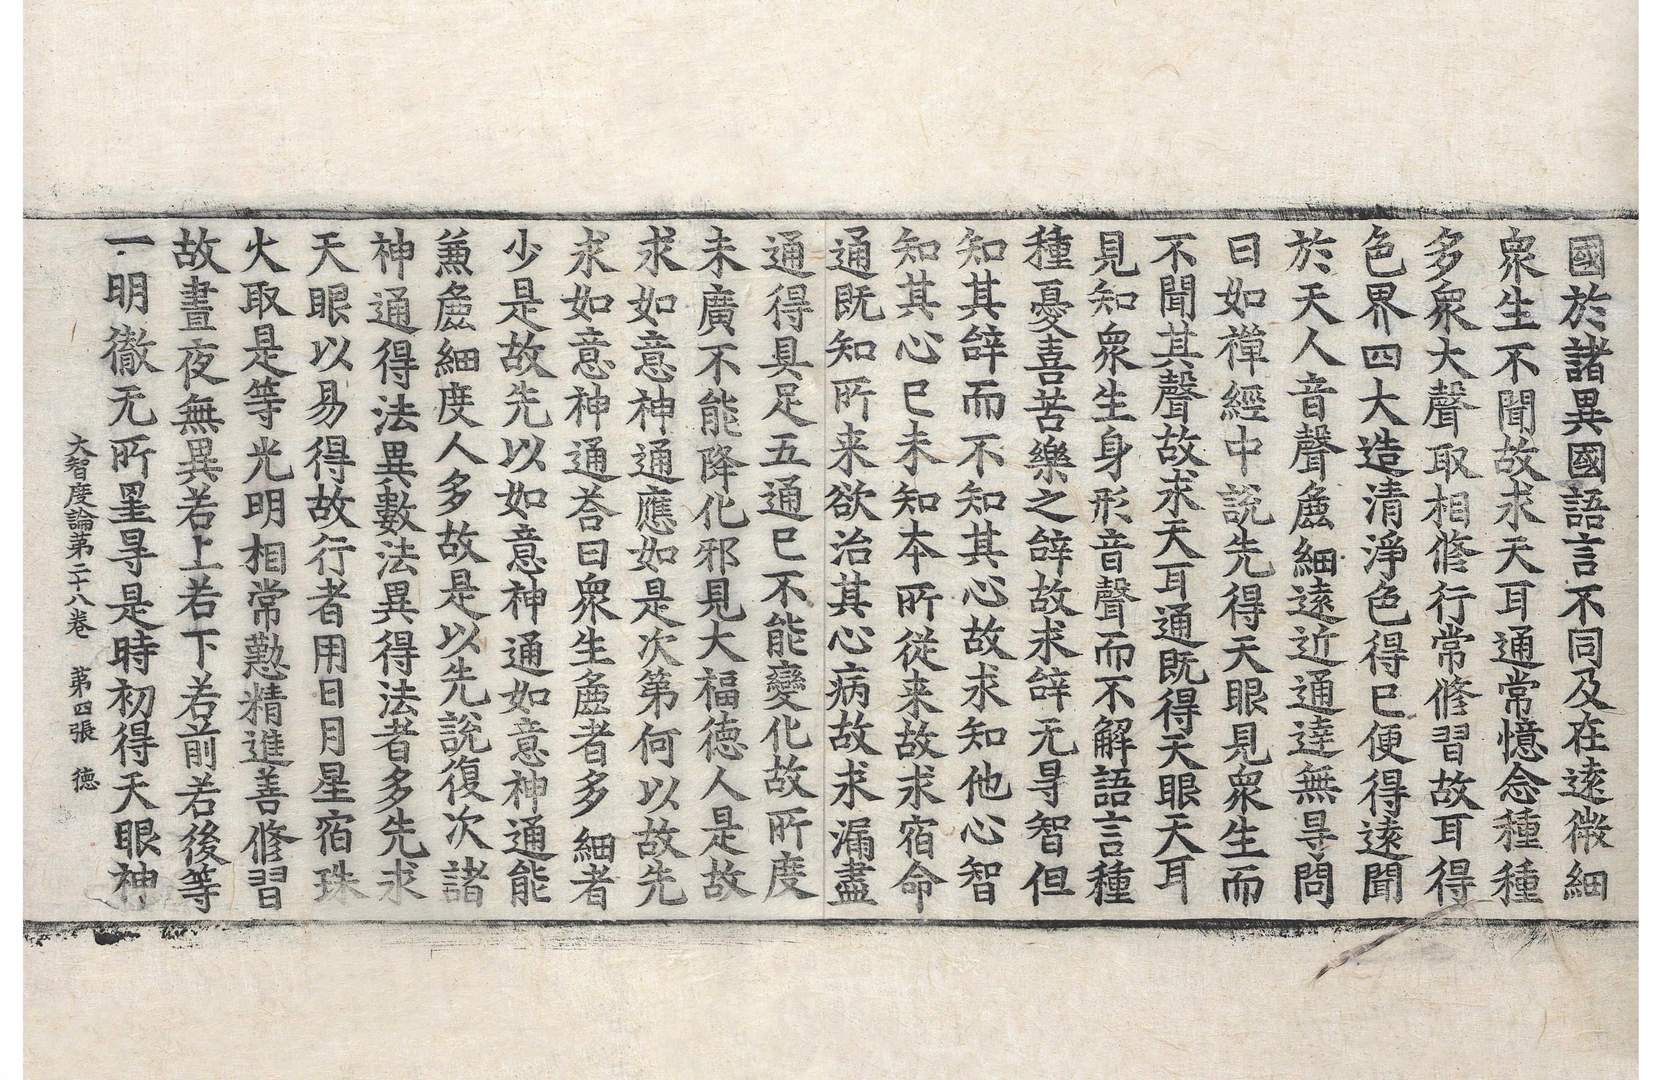 國於諸異國語言不同及在遠微細
衆生不聞故求天耳通常憶念種種
多衆大聲取相修行常修習故耳得
色界四大造清淨色得已便得遠聞
於天人音聲麁細遠近通達無㝵問
曰如禪經中說先得天眼見衆生而
不聞其聲故求天耳通既得天眼天耳
見知衆生身形音聲而不解語言種
種憂喜苦樂之辝故求辝无㝵智但
知其辝而不知其心故求知他心智
知其心已未知本所従来故求宿命
通既知所来欲治其心病故求漏盡
通得具足五通已不能變化故所度
未廣不能降化邪見大福德人是故
求如意神通應如是次第何以故先
求如意神通荅曰衆生麁者多細者
少是故先以如意神通如意神通能
兼麁細度人多故是以先說復次諸
神通得法異數法異得法者多先求
天眼以易得故行者用日月星宿珠
火取是等光明相常懃精進善修習
故晝夜無異若上若下若前若後等
一明徹无所罣㝵是時初得天眼神
大智度論第二十八卷　第四張　德